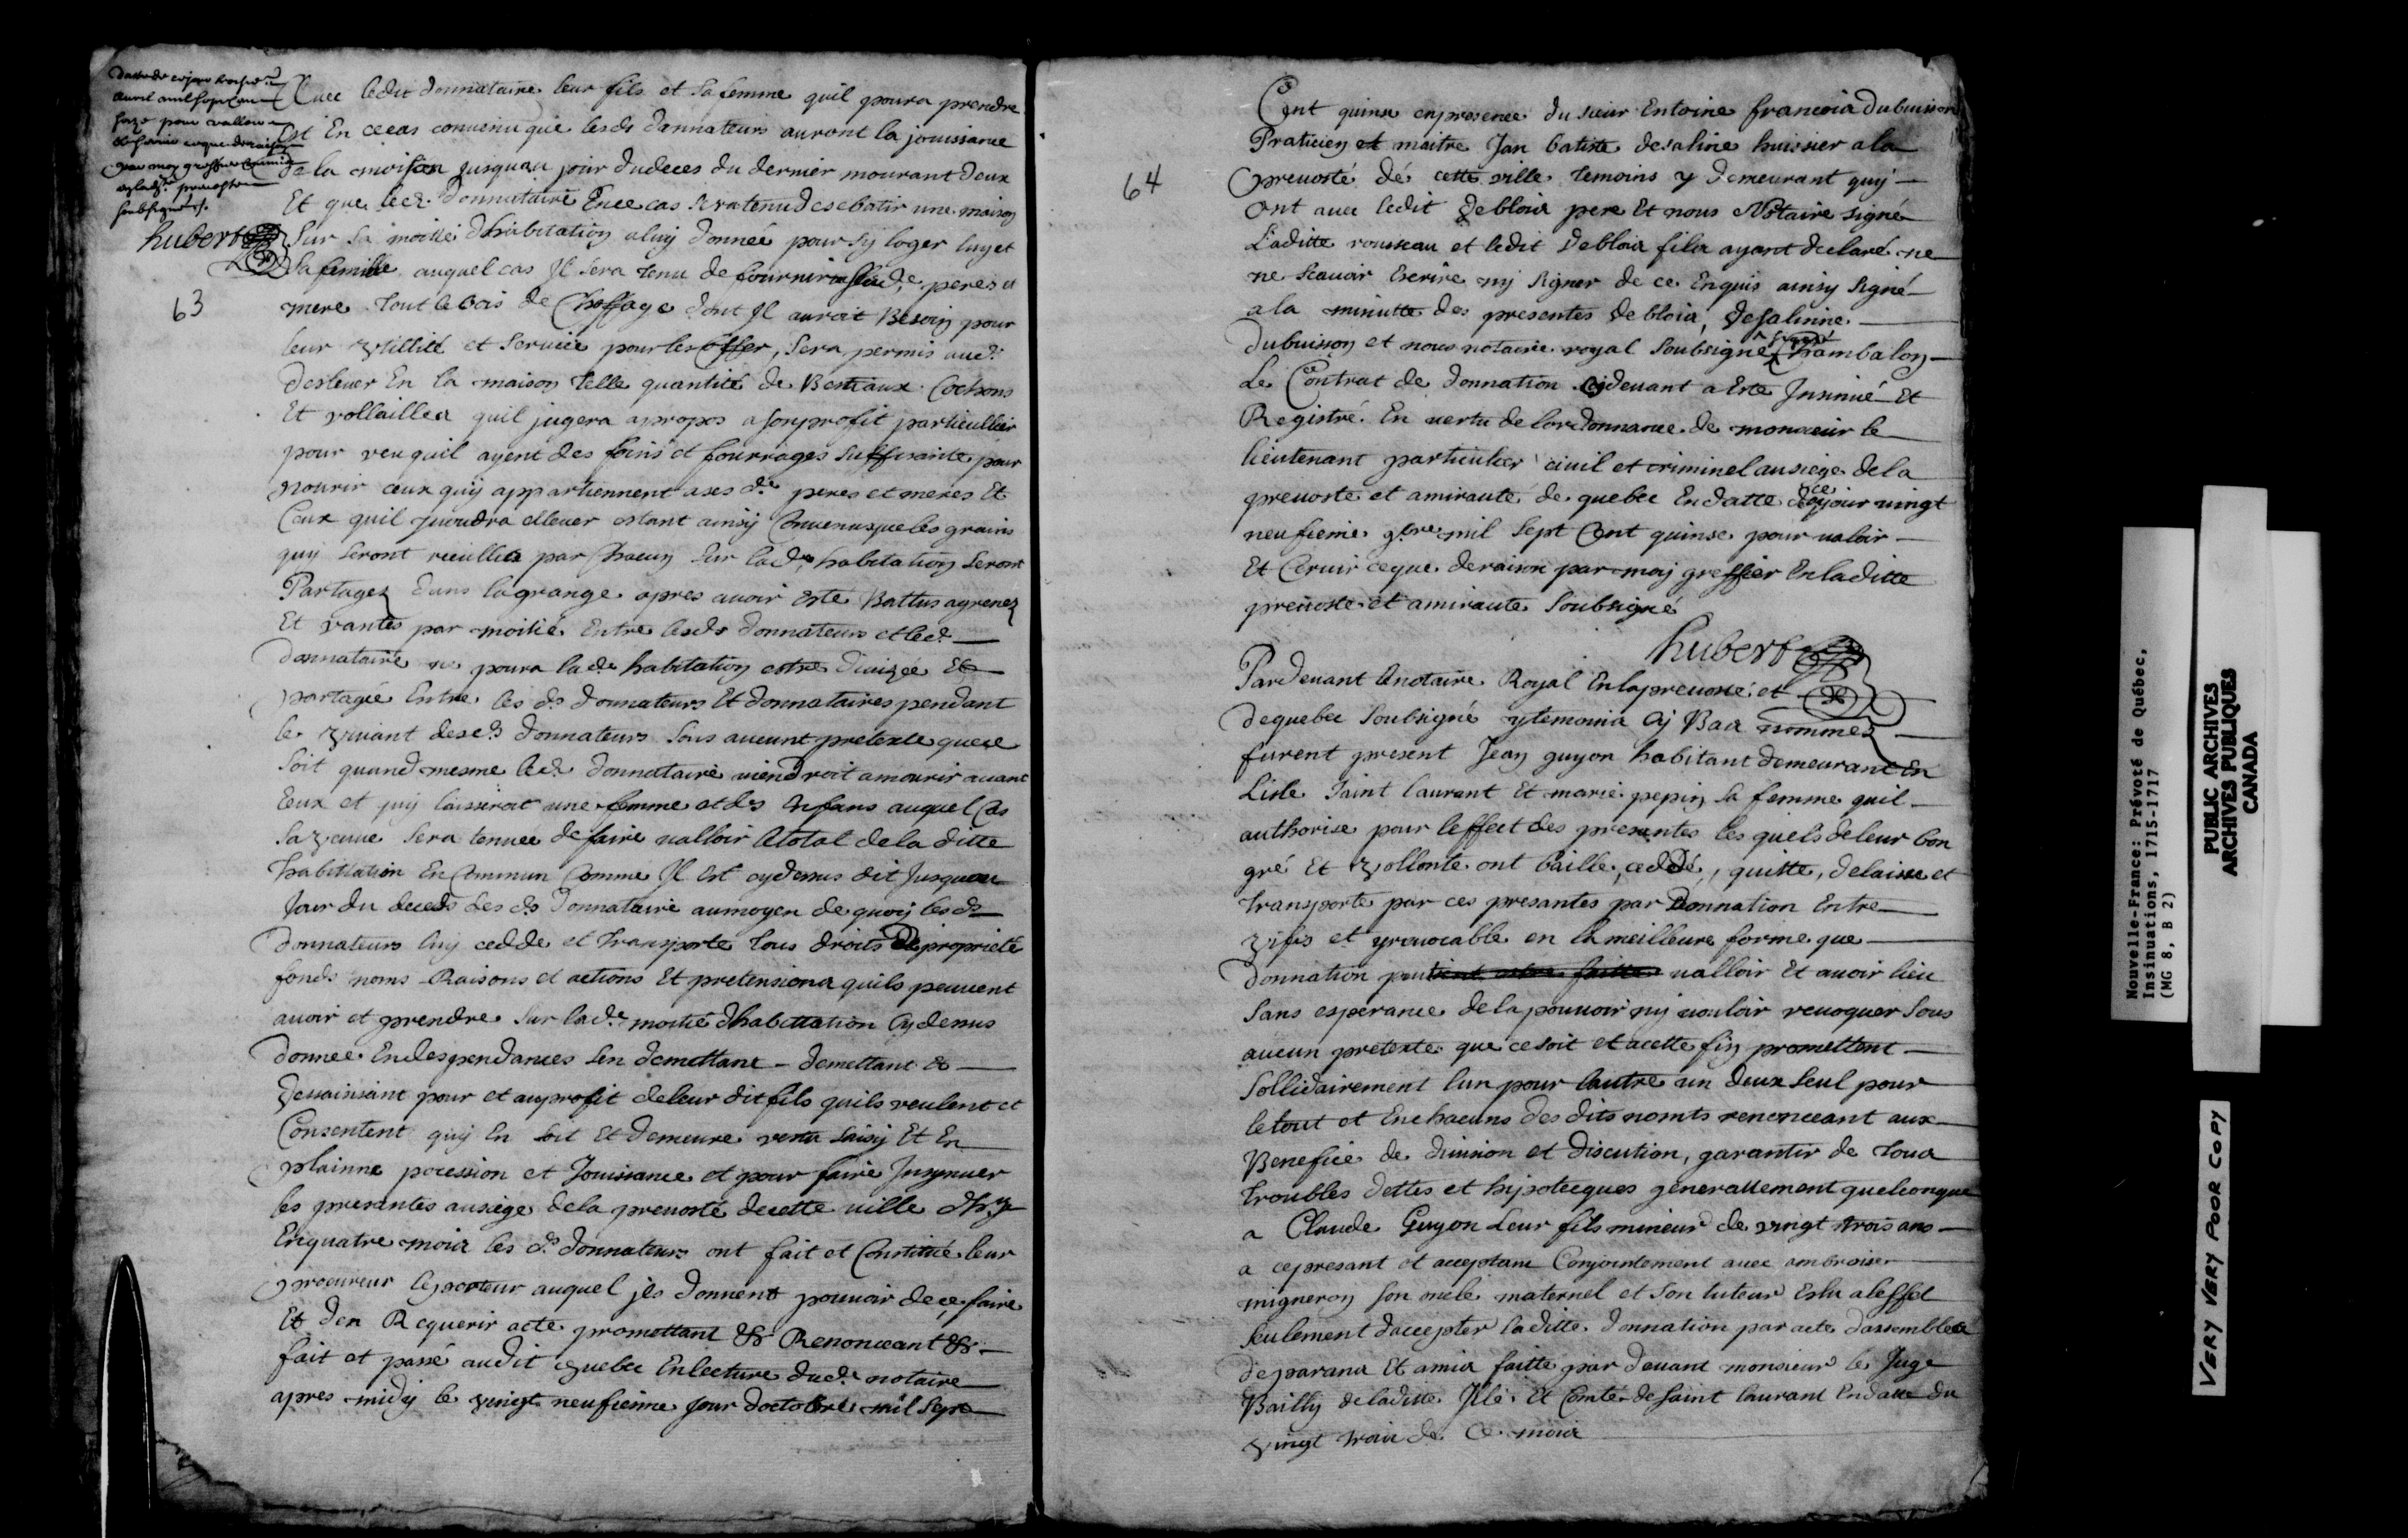 dattede cejour
auril mil sept cent
seize pour valloir
et seruir ceque deraison
par moy greffier commis
enlad.e preuosté
soubsigné
hubert
63
Auec ledit donnataire leur fils et sa femme quil poura prendre
Est En cecas conuenu que lesds donnateurs auront la jouissance
de la moison jusquau jour dudeces du dernier mourant deux
Et que led. donnataire Ence cas sera tenu dese batir une maison
sur sa moitié dhabitation aluy donnée pour sy loger luy et
sa famille auquel cas Il sera tenu de fournir peres et
mere tout le bois de Choffage dont Il auroit Besoin pour
leur Vtillité et seruice pour les , sera permis aud.
desleuer En la maison telle quantité de Bestiaux Cochons
Et vollailles quil jugera apropos a sonprofit particullier
pour veu quil ayent des foins et fourrages suffisante pour
nourir ceux quy appartiennent ases d.e peres et meres Et
Ceux quil voudra elleuer estant ainsy Conuenus que les grains
quy seront rieullis par Chacun sur lad.e habitation seront
Partagez dans lagrange apres auoir este Battus agrenez
Et vantés par moitié Entre lesds donnateurs et led.
donnataire ne poura lade habitation estre diuizée Et
partagée Entre les ds donnateurs Et donnataires pendant
le viuant desds donnateurs sous aucunt pretexte quece
soit quand mesme led. donnataire viendroit amourir auant
Eeux et quy laisseroit une femme et des Enfans auquel Cas
sa veuue sera tenuee de faire valloir letotal dela ditte
habitation En Commun Comme Il est cydessus dit Jusquau
Jour du deceds des ds donnataire aumoyen de quoy les ds
donnateurs luy cedde et transporte tous droits de proprieté
fonds noms Raisons et actions Et pretensions quils peuuent
auoir et prendre sur lade moitié dhabittation Cydessus
donnée Endespendances sen demettant - demettant &
dessaisisant pour et auprofit deleur dit fils quils veulent et
Consentent quy En soit Et demeure vetu saisy Et En
plainne pocession et Jouissance et pour faire Insynuer
les presentes ausiege dela preuosté decette ville
Enquatre mois les ds donnateurs ont fait et Constitué leur
procureur leporteur auquel jls donnent pouuoir dece faire
Et den Requerir acte promettant &c Renonceant &c
fait et passé audit quebec Enlecture dud. notaire
apres midy le vingt neufieme jour doctobre mil sept
64
Cent quinse enpresence du sieur Entoine francois Dubuisson
Praticien et maitre Jan batiste desaline huissier a la
preuosté dé cette ville temoins y demeurant quy
ont auec ledit deblois pere Et nous Notaire signé
Laditte rousseau et ledit deblois fils ayant declaré ne
ne scauoir Escrire ny signer de ce Enquis ainsy signé
a la minutte des presentes deblois, desalinne
dubuisson et nous notaire royal soubsigné Chambalon
Le Contrat de donnation cydeuant a Este Insinué Et
Registré En vertu de lordonnance de monsieur le
lieutenant particulier ciuil et criminel ausiege dela
preuoste et amirauté de quebec Endatte de ce jour vingt
neufieme 9bre mil sept Cent quinse pour valoir
Et Ceruir ceque deraison par moy greffier Enladitte
preuoste et amiraute soubsigné
hubert
Pardeuant lenotaire Royal Enlapreuosté et
dequebec soubsigné ytemoins Cy Bas nommez
furent present Jean guyon habitant demeurant En
Lisle saint laurent Et marie pepin sa femme quil
authorise pour leffect des presentes les quels deleur bon
gré Et vollonte ont baille, ceddé, quitte, delaisse et
transporte par ces presantes par Donnation Entre
vifs et yreuocable en la meilleure forme que
donnation valloir Et auoir lieu
sans esperance dela pouuoir ny vouloir reuoquer sous
aucun pretexte que cesoit et acette fin promettent
sollidairement lun pour lautre un deux seul pour
letout et Enchacuns des dits nomts renonceant aux
Benefice de diuision et discution, garantir de tous
troubles dettes et hipotecques generallement quelconque
a Claude Guyon Leur fils mineur de vingt trois ans
a cepresant et acceptant Conjointement auec ambroise
migneron son oncle maternel et son tuteur Eslu aleffet
seulement daccepter laditte donnation par acte dassemblée
deparans Et amis faitte par deuant monsieur le Juge
Bailly deladitte Jlle Et Comté de saint laurant Endatte du
vingt trois de Ce mois
Nouvelle-France: Prévoté de Québec,
Insinuations, 1715-1717
(MG 8, B 2)
PUBLIC ARCHIVES
ARCHIVES PUBLIQUES
CANADA
VERY VERY POOR COPY